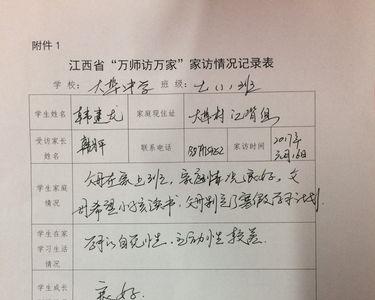 附件1
江西省“万师访万家”家访情况记录表
学校：大塘中学 班级：七（1）班
学生姓名 韩建龙 家庭现住址 大塘村 组
受访家长姓名 韩 联系电话 家访时间 2017年 月16日
学生家庭情况 父母在家上班，家庭情况良好，父
母希望小孩读书，父母制定了寒假学习计划.
学生在家学习生活情况 学习自觉性，主动性较差
学生成长 良好.